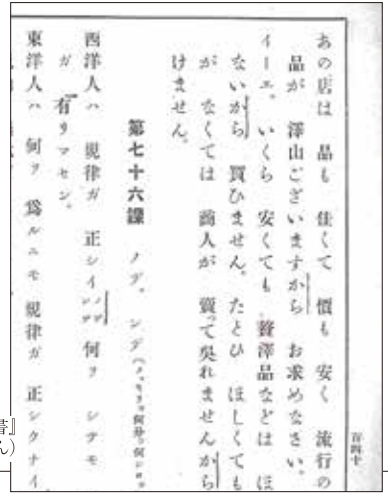 あの店は 品も 佳くて 價も 安く 流行の
品が 澤山ございますから お求めなさい。
イーエ。いくら 安くても 贅澤品などは ほ
ないから 買ひません。たとひ ほしくても
が なくては 商人が 賣って吳れませんから
けません。
第七十六課 ノデ。ンデ
西洋人ハ 規律ガ 正シイノデ 何ヲ シテモ
ンデ
ガ 有リマセン。
東洋人ハ 何ヲ 爲ルニモ 規律ガ 正シクナイ
百四十
書』
ん)